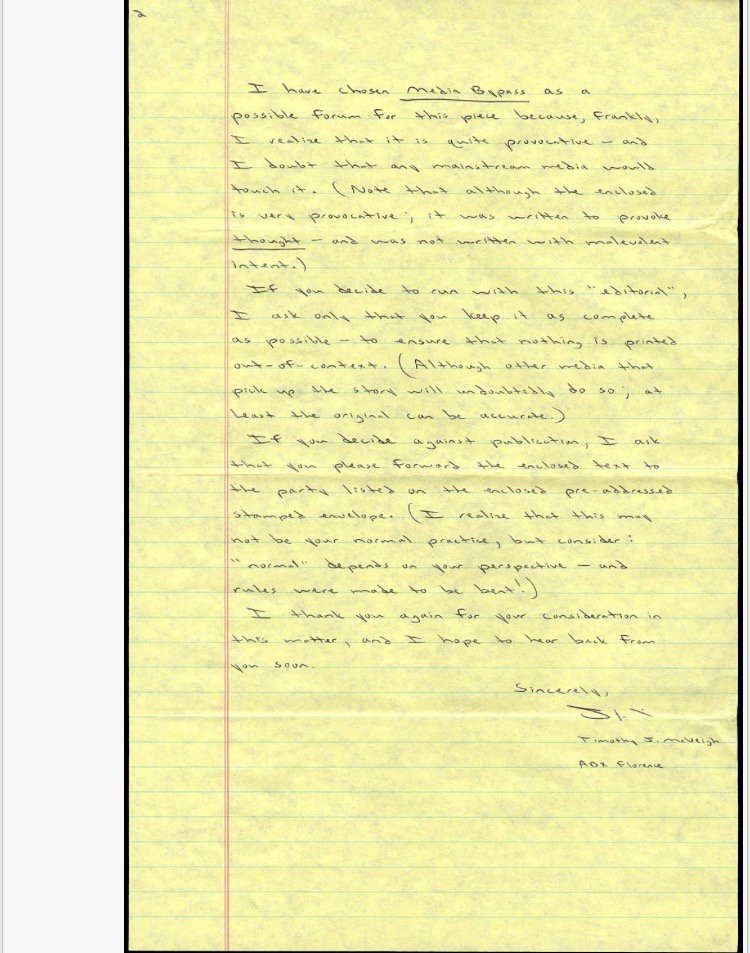 2
I have chosen Media Bypass as a
possible forum for this piece because, frankly,
I realize that it is quite provocative – and
I doubt that any mainstream media would
touch it. (Note that although the enclosed
is very provocative; it was written to provoke
thought – and was not written with malevolent
intent.)
If you decide to run with this "editorial",
I ask only that you keep it as complete
as possible – to ensure that nothing is printed
out-of-context. (Although other media that
pick up the story will undoubtedly do so; at
least the original can be accurate.)
If you decide against publication, I ask
that you please forward the enclosed text to
the party listed on the enclosed pre-addressed
stamped envelope. (I realize that this may
not be your normal practice, but consider:
"normal" depends on your perspective – and
rules were made to be bent!)
I thank you again for your consideration in
this matter, and I hope to hear back from
you soon.
Sincerely,
Timothy J. McVeigh
ADX Florence